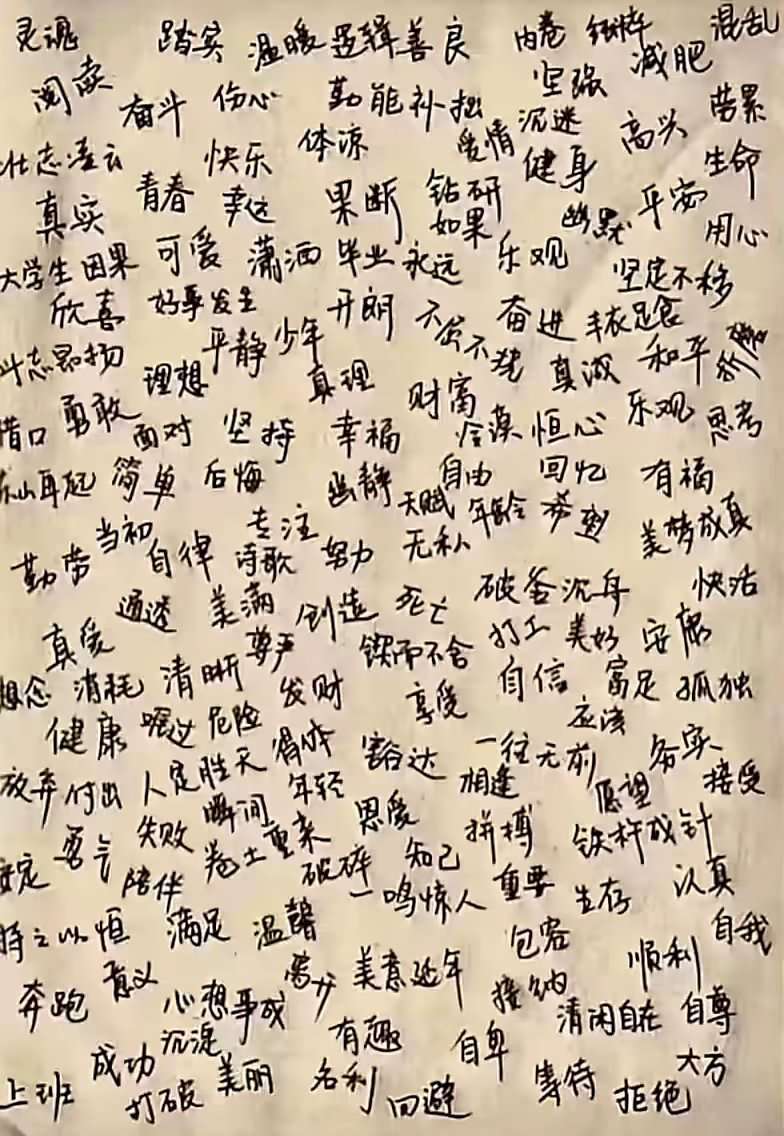 灵魂 踏实 温暖 逻辑 善良 内卷 纯粹 混乱
阅读 奋斗 伤心 勤能补拙 坚强 减肥
壮志凌云 快乐 体谅 爱情 沉迷 健身 高兴 劳累
真实 青春 幸运 果断 钻研 如果 幽默 平安 生命
大学生 因果 可爱 潇洒 毕业 永远 乐观 坚定不移 用心
欣喜 好事发生 开朗 不屈不挠 奋进 丰衣足食
斗志昂扬 理想 平静 少年 真理 财富 真诚 和平
借口 勇敢 面对 坚持 幸福 冷漠 恒心 乐观 思考
东山再起 简单 后悔 幽静 自由 回忆 有福
勤劳 当初 自律 专注 诗歌 努力 天赋 无私 年龄 美梦成真
真爱 通透 美满 创造 死亡 破釜沉舟 快活
想念 消耗 清晰 尊严 锲而不舍 打工 美好 安康
健康 危险 发财 享受 自信 富足 孤独
放弃 付出 人定胜天 得体 豁达 一往无前 应该 务实
勇气 失败 瞬间 年轻 恩爱 相逢 愿望 接受
安定 陪伴 卷土重来 破碎 知己 拼搏 铁杵成针
持之以恒 满足 温馨 一鸣惊人 重要 生存 认真
奔跑 意义 心想事成 美意延年 包容 接纳 顺利 自我
上班 成功 沉淀 有趣 自卑 清闲自在 自尊
打破 美丽 名利 回避 等待 拒绝 大方